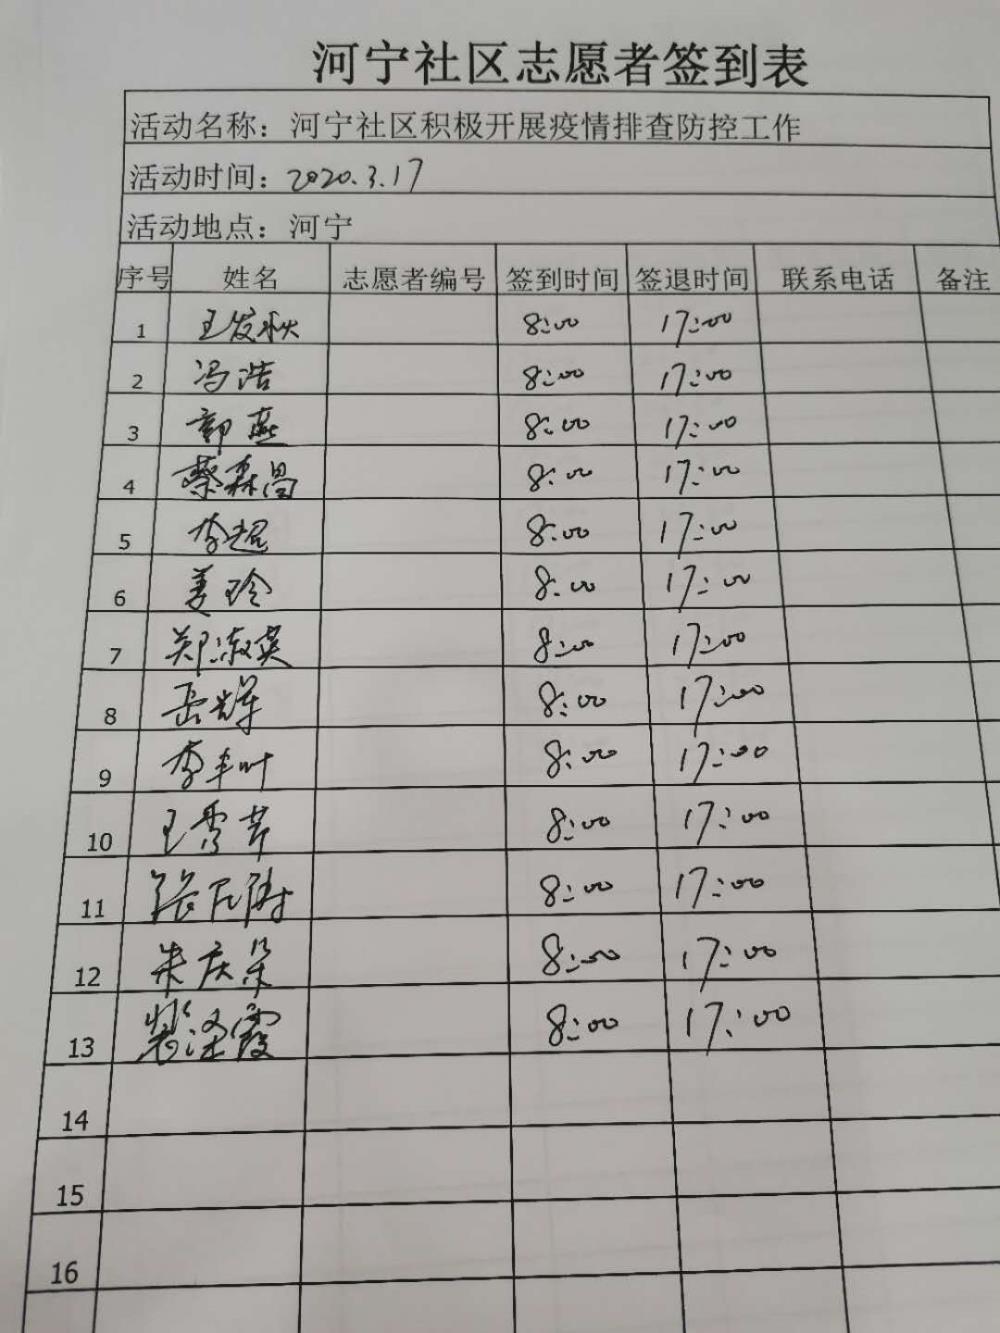 河宁社区志愿者签到表
活动名称：河宁社区积极开展疫情排查防控工作
活动时间：2020.3.17
活动地点：河宁
序号 姓名 志愿者编号 签到时间 签退时间 联系电话 备注
1 王发秋 8:00 17:00
2 冯浩 8:00 17:00
3 郭燕 8:00 17:00
4 蔡森昌 8:00 17:00
5 李超 8:00 17:00
6 姜玲 8:00 17:00
7 郑淑英 8:00 17:00
8 岳辉 8:00 17:00
9 李丰叶 8:00 17:00
10 王秀芹 8:00 17:00
11 张 8:00 17:00
12 朱庆荣 8:00 17:00
13 裴泽霞 8:00 17:00
14
15
16